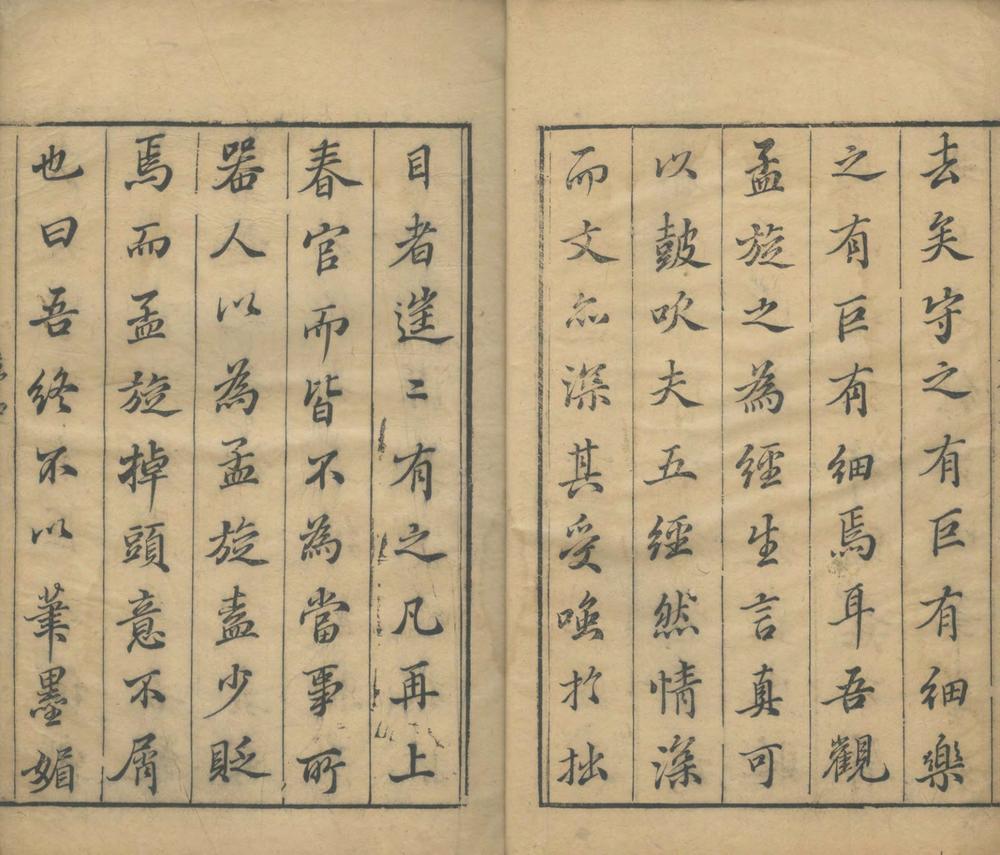 去矣守之有巨有細樂
之有巨有細焉耳吾觀
孟旋之為經生言真可
以鼓吹夫五經然情深
而文亦深其受嗤於拙
目者〻有之凡再上
春官而皆不為當事所
器人以為孟旋盍少貶
焉而孟旋掉頭意不屑
也曰吾終不以筆墨媚